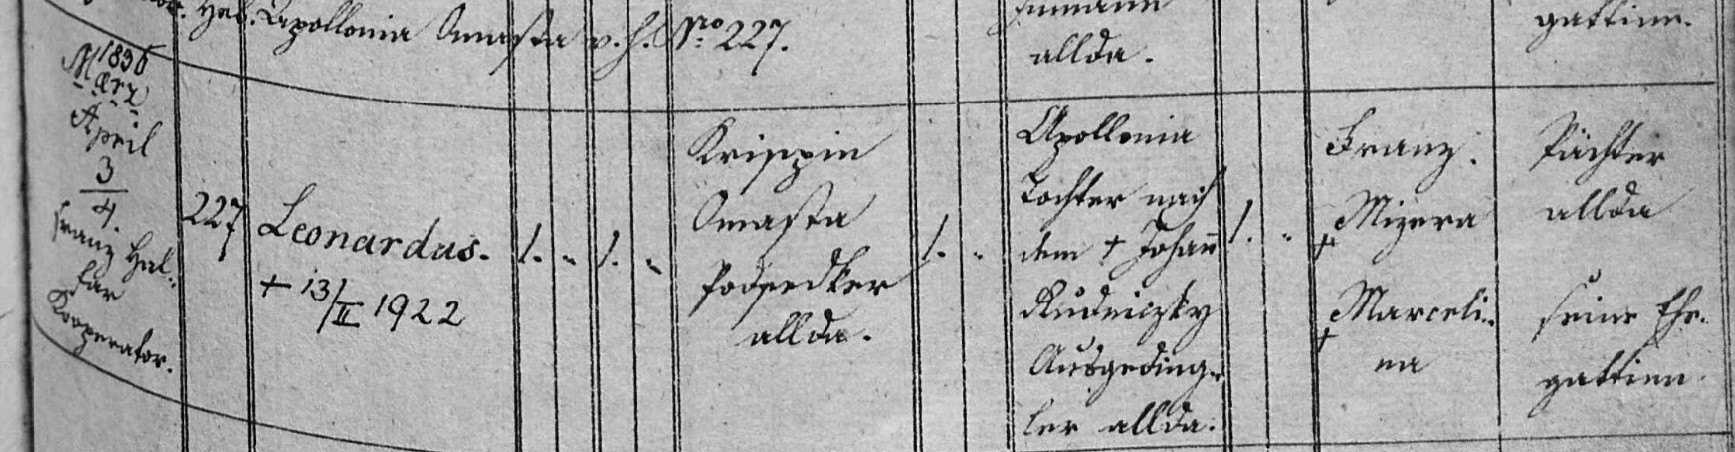 Heb. Apollonia Omasta v. h. No 227.
allda.
gattinn.
1836
März
April
3
4.
Franz Hal-
lar
Kooperator.
227
Leonardus.
+ 13/II 1922
1. " 1. "
Krispin
Omasta
Podsedker
allda.
1. "
Apollonia
Tochter nach
dem + Johann
Rudniczky
Ausgeding-
ler allda.
1. "
Franz
+ Mizera
+ Marceli-
na
Pächter
allda
seine Ehe-
gattinn.